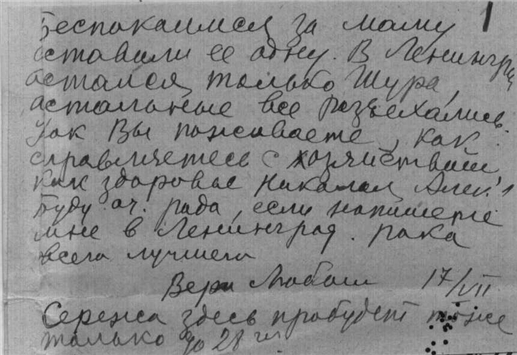 1
беспокоимся за маму
оставили ее одну. В Ленингр
остался только Шура,
остальные все разъехались.
Как Вы поживаете, как
справляетесь с хозяйством,
как здоровье Николая Алек.
Буду оч. рада, если напишете
мне в Ленинград. Пока
всего лучшего
Вера 17/VII
Сережа здесь пробудет тоже
только до 28